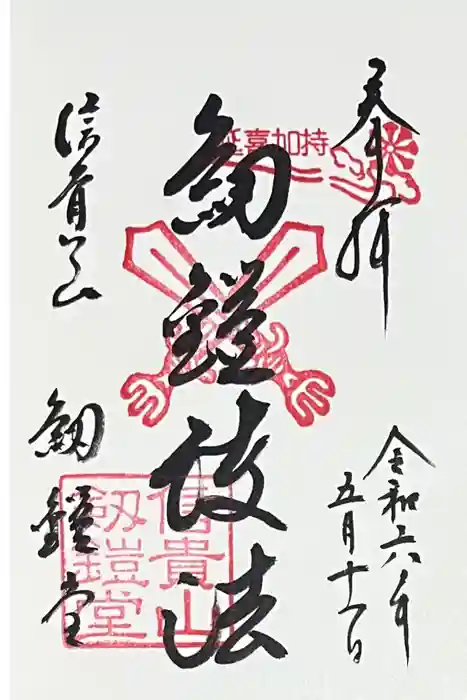 奉拝
延喜加持
劔鎧護法
令和六年
五月十一日
信貴山
劔鎧堂
信貴山
劔鎧堂